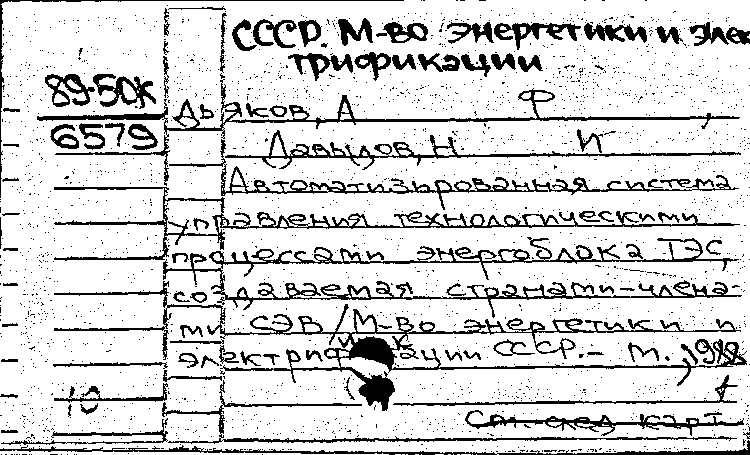 СССР. М-во энергетики и элек
трификации
89-50К
6579
Дьяков, А Ф ,
Давыдов, Н И
Автоматизированная система
управления технологическими
процессами энергоблока ТЭС,
создаваемая странами-члена-
ми СЭВ / М-во энергетики и
электрификации СССР.- М., 1988
10
См. след карт